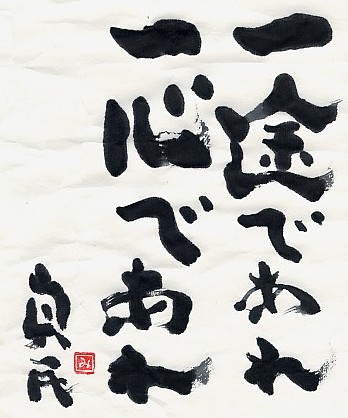 一途であれ
一心であれ
真民
み